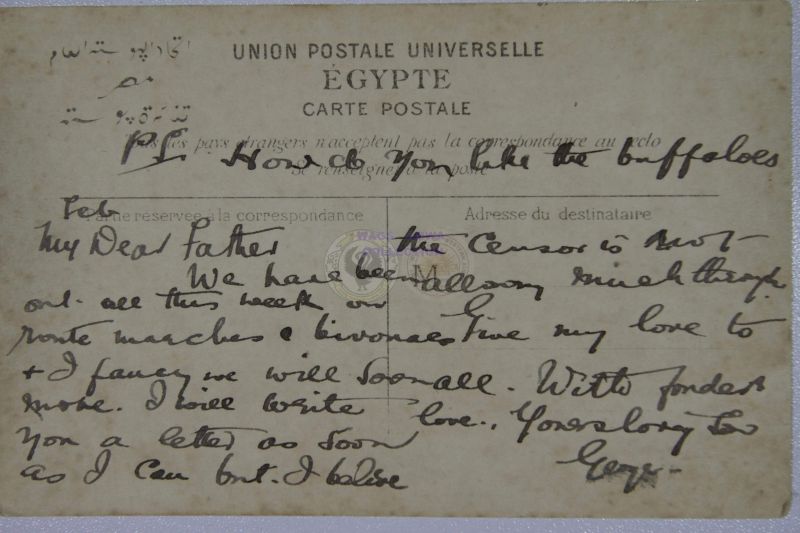 اتحاد البوستة العام
UNION POSTALE UNIVERSELLE
مصر
ÉGYPTE
تذكرة بوستة
CARTE POSTALE
les pays étrangers n'acceptent pas la correspondance au recto
Se renseigner à la poste
PS How do you like the buffaloes
Partie réservée à la correspondance
Adresse du destinataire
M
Feb
My Dear Father
We have been
out all this week on
route marches & bivouacs
& I fancy we will soon
move. I will write
you a letter as soon
as I can but I belive
the censor is not
allowing much through
Give my love to
all. With fondest
love, Yours loving Son
George